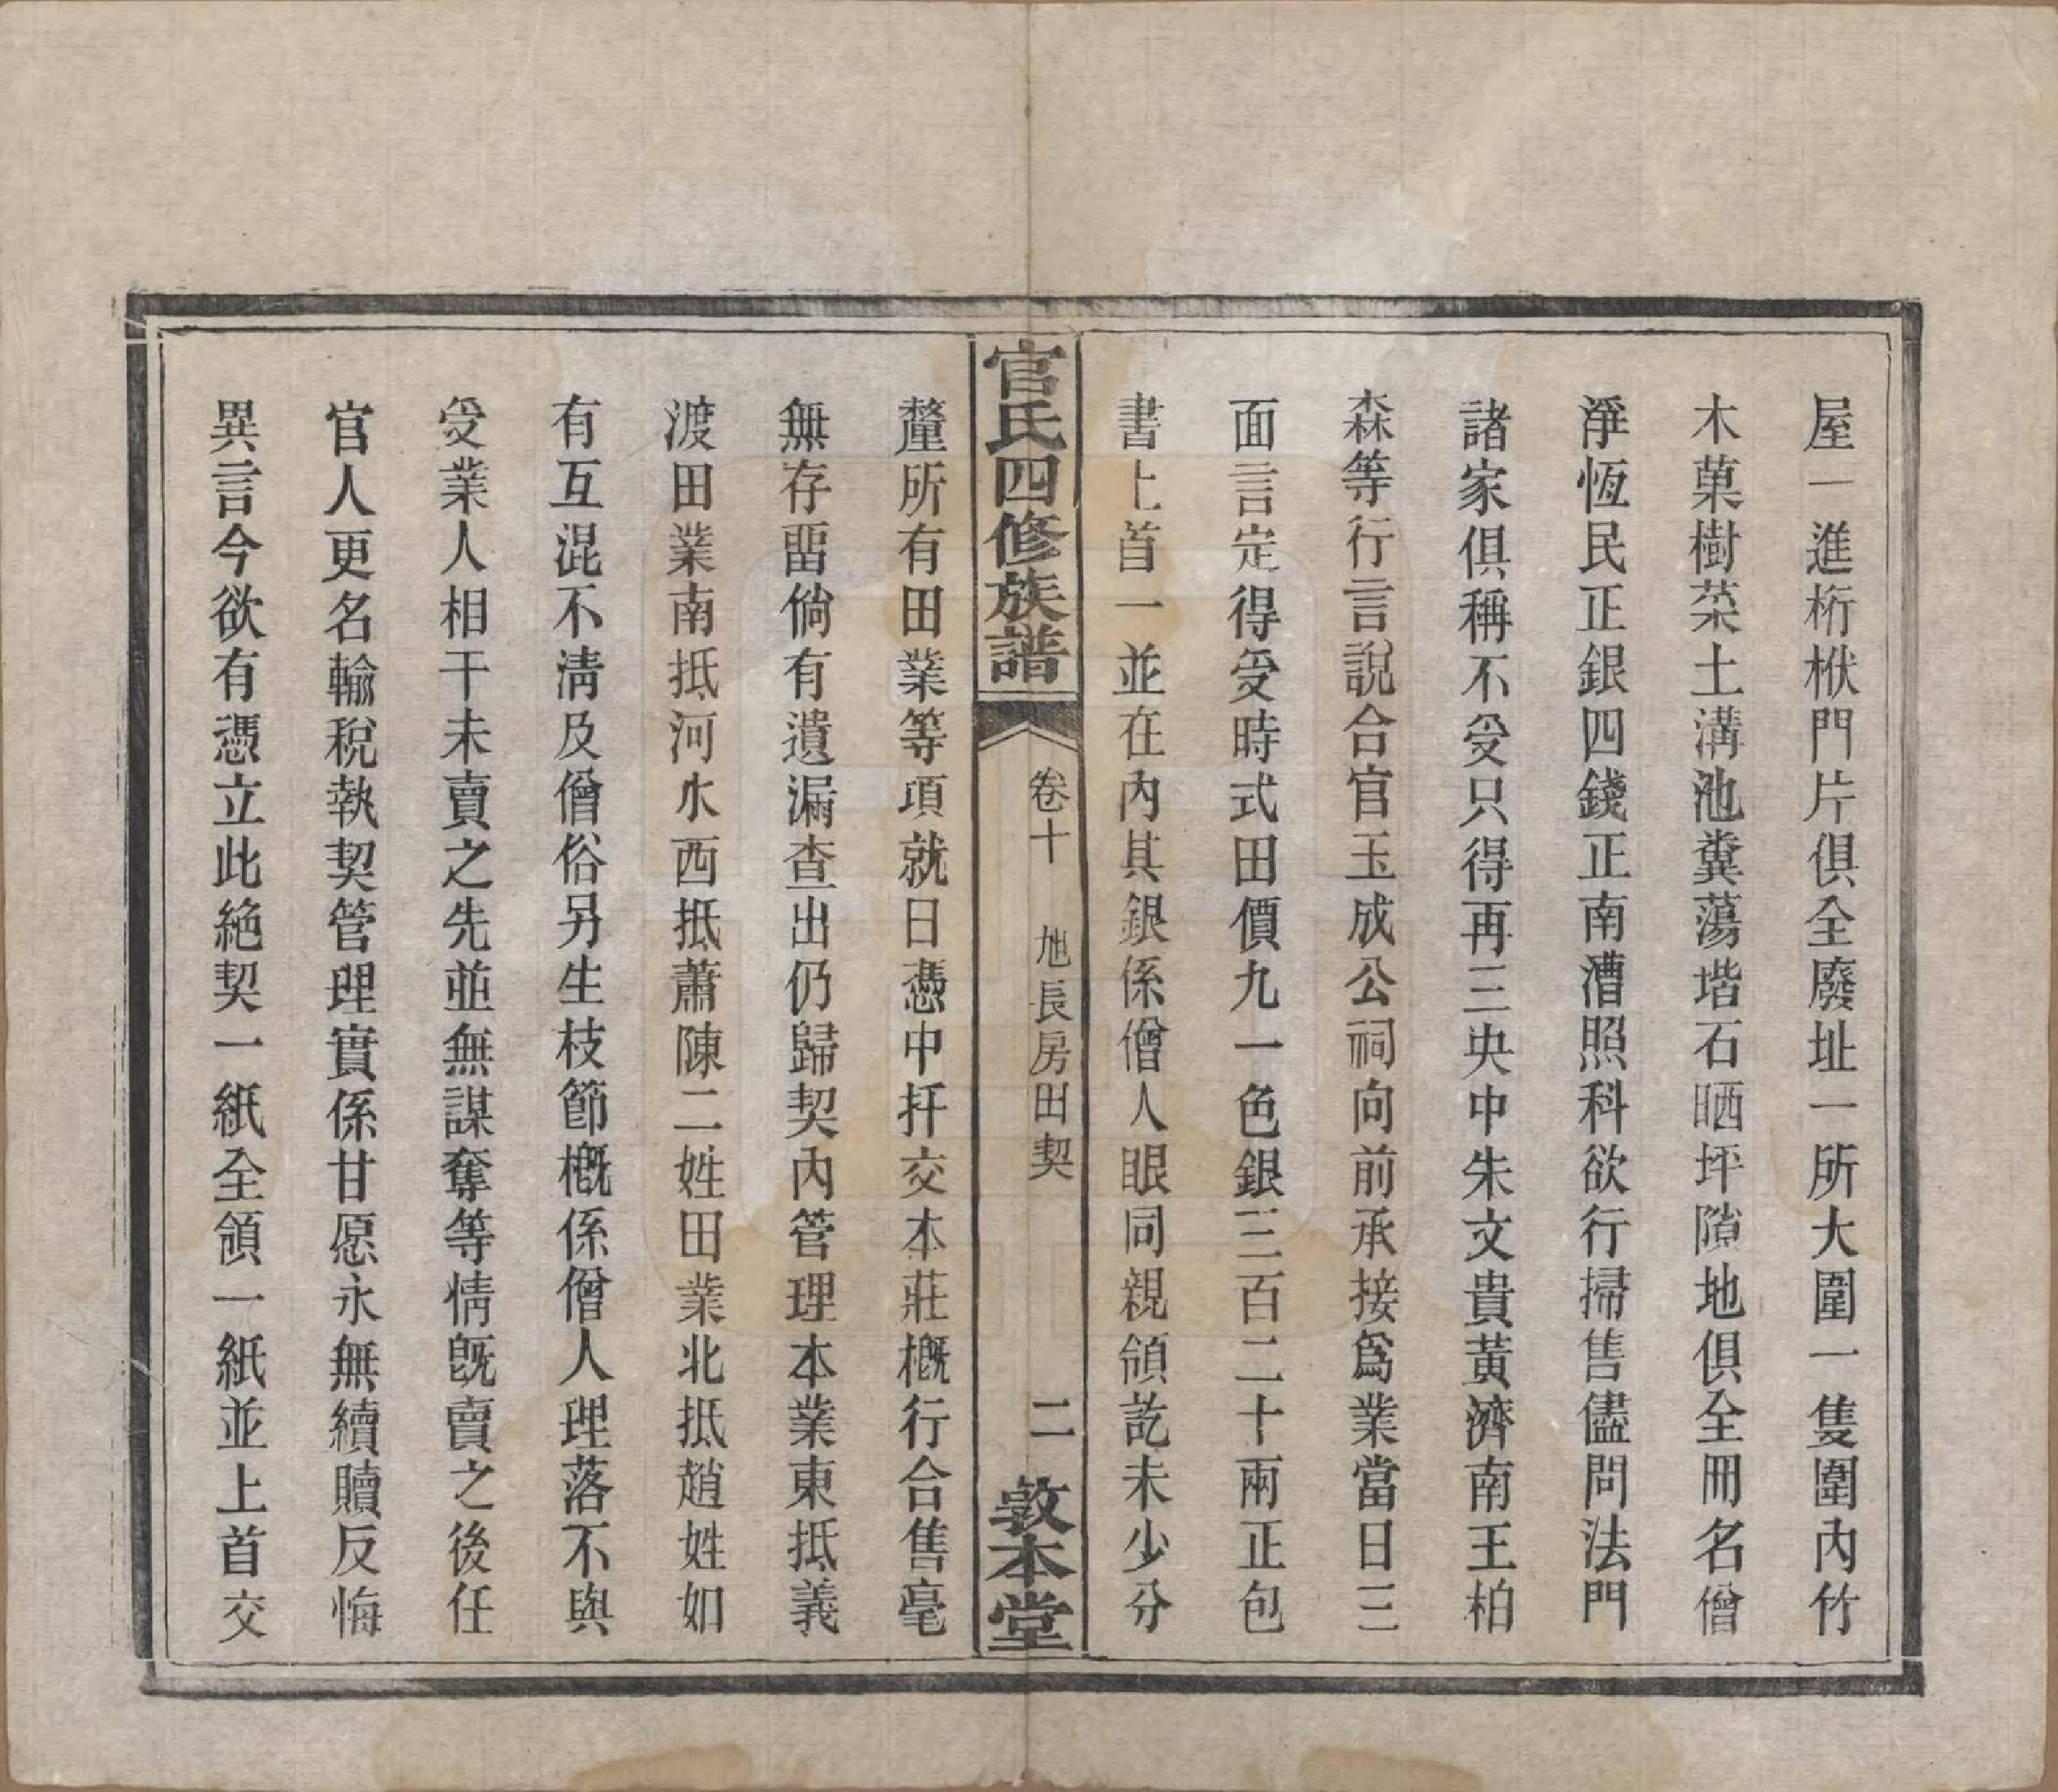 屋一進桁栿門片俱全廢址一所大圍一隻圍內竹
木菓樹菜土溝池糞蕩堦石晒坪隙地俱全冊名僧
淨恆民正銀四錢正南漕照科欲行掃售儘問法門
諸家俱稱不受只得再三央中朱文貴黃濟南王柏
森等行言說合官玉成公祠向前承接爲業當日三
面言定得受時式田價九一色銀三百二十兩正包
書上首一並在內其銀係僧人眼同親領訖未少分
官氏四修族譜
卷十 旭長房田契 二
敦本堂
釐所有田業等項就日憑中扦交本莊槪行合售毫
無存畱倘有遺漏查出仍歸契內管理本業東抵義
渡田業南抵河水西抵蕭陳二姓田業北抵趙姓如
有互混不淸及僧俗另生枝節槪係僧人理落不與
受業人相干未賣之先並無謀奪等情旣賣之後任
官人更名輸稅執契管理實係甘愿永無續贖反悔
異言今欲有憑立此絶契一紙全領一紙並上首交